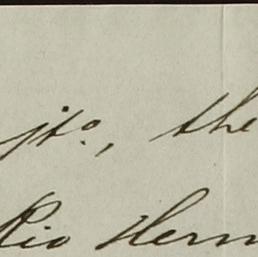 jto, the
Rio Hern